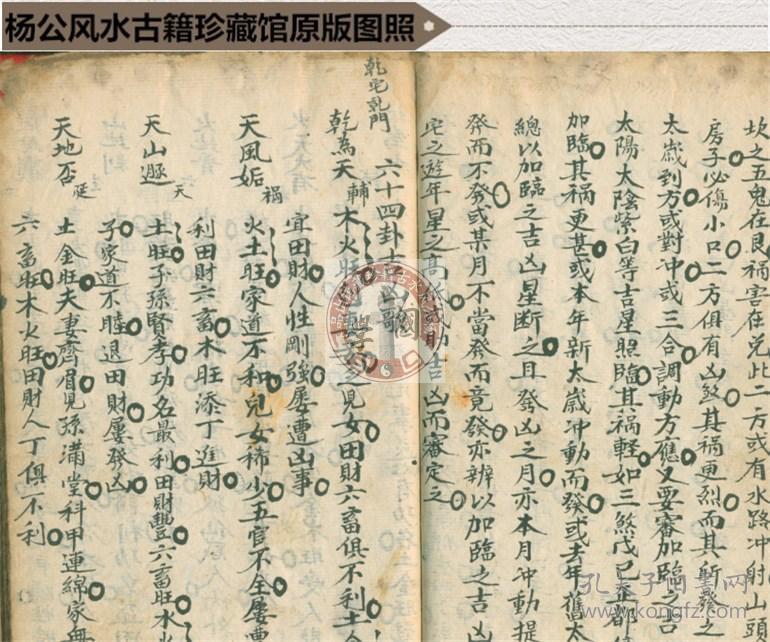 杨公风水古籍珍藏馆原版图照
坎之五鬼在艮祸害在兑此二方或有水路冲射山頭
房子必傷小口二方俱有凶煞其祸更烈而其所發之
太歲到方或對冲或三合調動方應又要審加臨之吉
太陽太陰紫白等吉星照臨其祸軽如三煞戊己
加臨其祸更甚或本年新太歲冲動而發或去年舊太
總以加臨之吉凶星断之且發凶之月亦本月冲動提
發而不發或某月不當發而竟發亦辨以加臨之吉凶
宅之遊年星之高 吉凶而審定之
乾宅乾門
六十四卦吉凶歌
乾為天 輔 木火旺 之見女田財六畜俱不利土金
宜田財人性剛強屡遭凶事
天風姤 禍 火土旺家道不和兒女稀少五官不全屡遭
利田財六畜木旺添丁進財
天山遯 天 土旺子孫賢孝功名最利田財豐六畜旺水火
子家道不睦退田財屡發凶
天地否 延 土金旺夫妻齊眉見孫满堂科甲連綿家無
六畜旺木火旺田財人丁俱不利
國學
孔夫子旧書网
www.kongfz.com